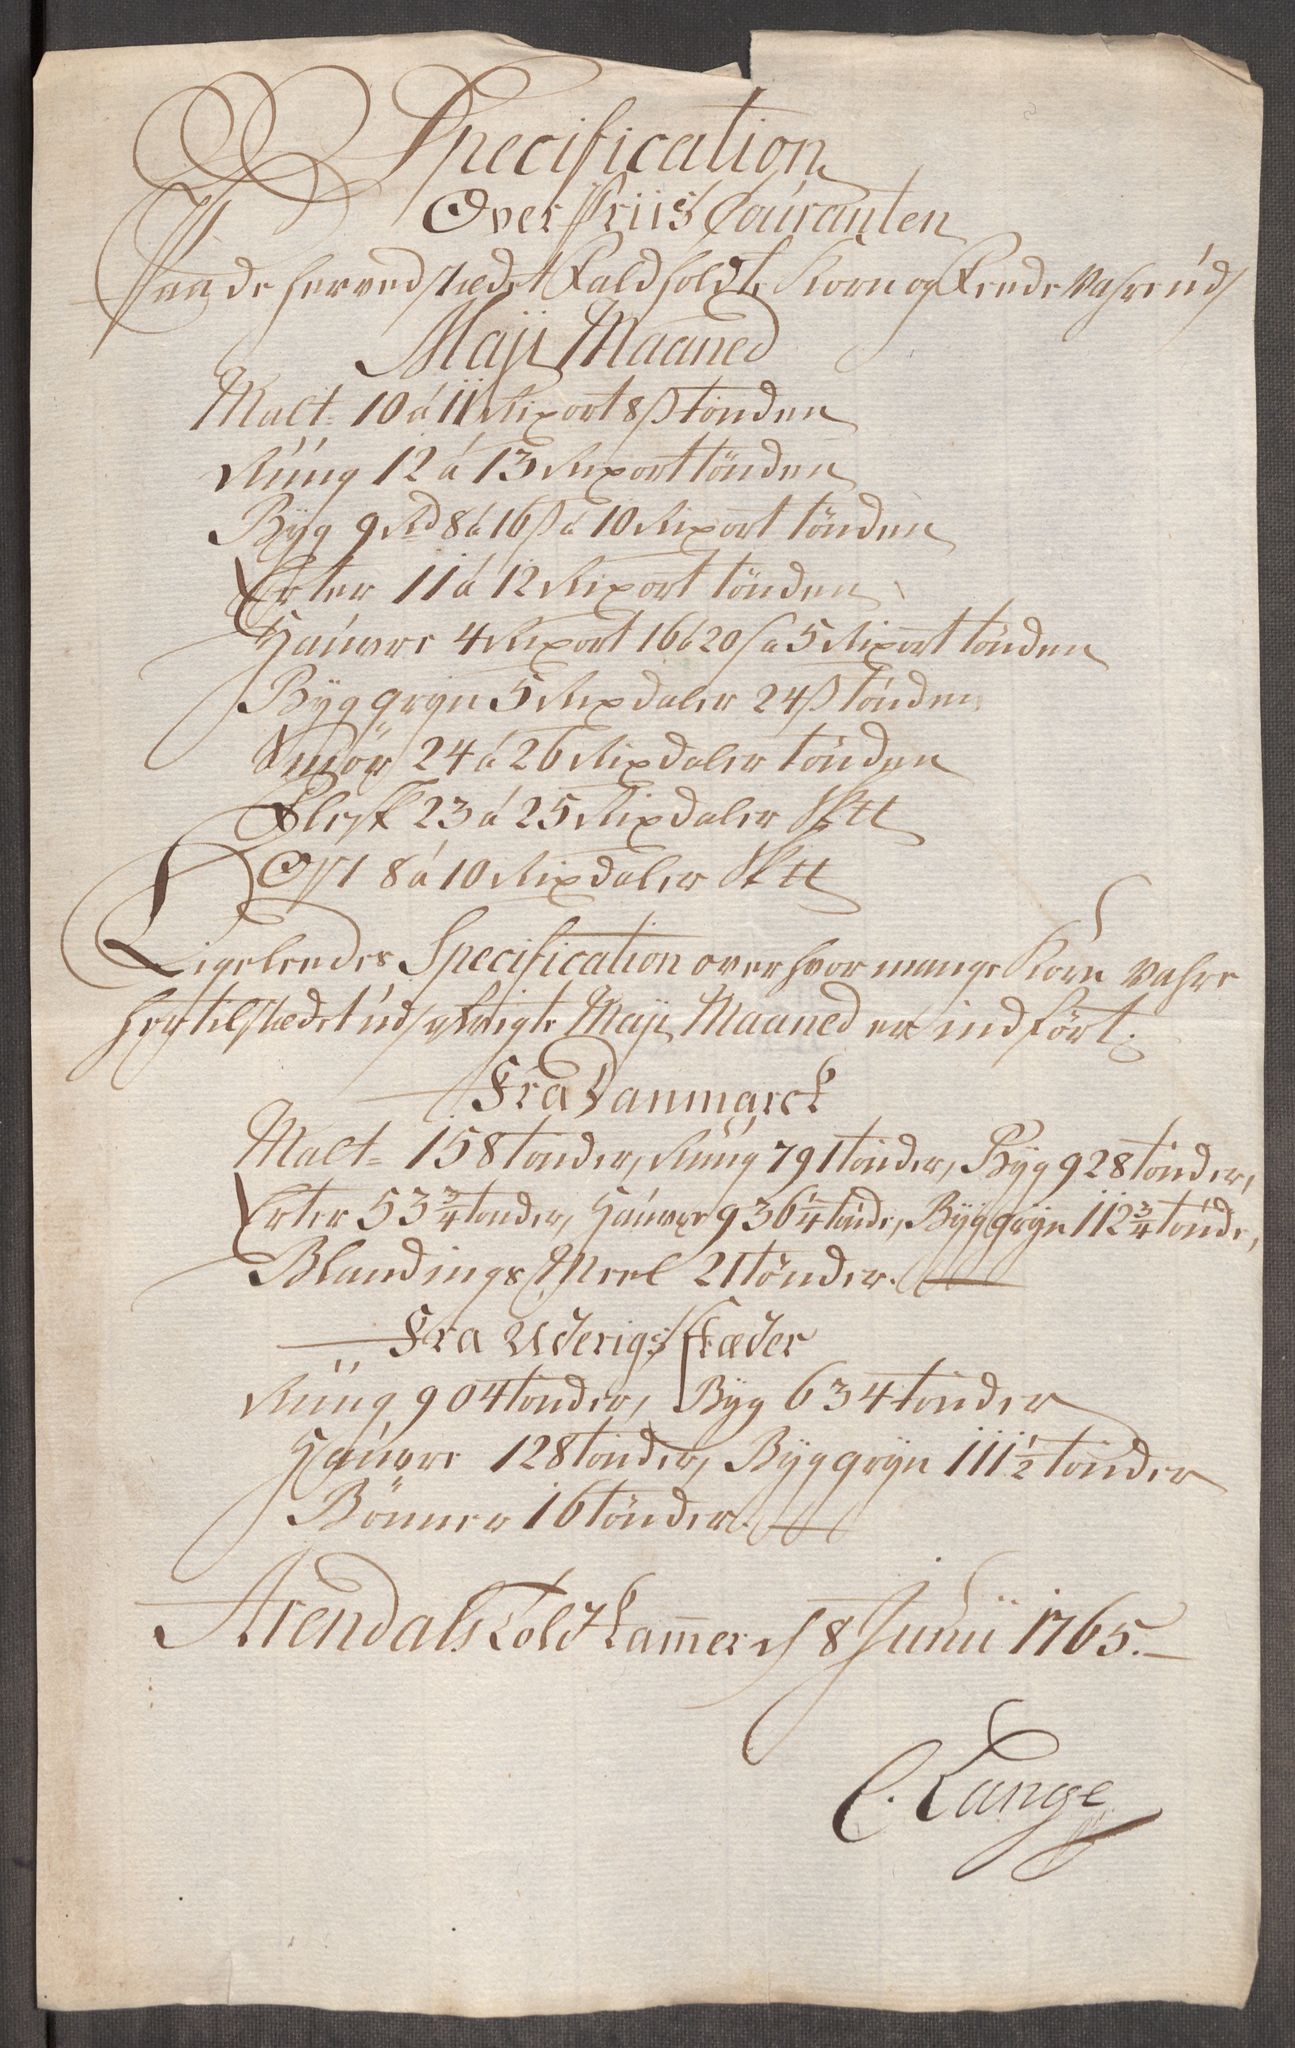 Specification
Over Priis Couranten
Paa de herved stædet Faldholdte Korn og Feede Vahre udj
Maji Maaned
Malt 10 á 11 Rixort 8 ß tønden
Rúúg 12 á 13 Rixort tønden
Byg 9 Rd 8 á 16 ß á 10 Rixort tønden
Erter 11 á 12 Rixort tønden
Haúvre 4 Rixort 16 á 20 ß á 5 Rixort tønden
Byggryn 5 Rixdaler 24 ß tønden
Smør 24 á 26 Rixdaler tønden
Flesk 23 á 25 Rixdaler Sktt
Ost 8 á 10 Rixdaler Sktt
Ligeleedes Specification over hvor mange Korn Vahre
her til stædet udj afvigte Maji Maaned er indført.
Fra Danmarck
Malt 158 tønder, Rúúg 791 tønder, Byg 928 tønder,
Erter 53 3/4 tønder, Haúvre 936 1/4 tønde, Byggryn 112 3/4 tønde,
Blandings Meel 21 tønder.
Fra Uderigs stæder
Rúúg 904 tønder, Byg 634 tønder
Haúvre 128 tønder, Byggryn 111 1/2 tønder
Bønner 16 tønder.
Arendals Told Kammer d 8 Junii 1765.
C. Lange